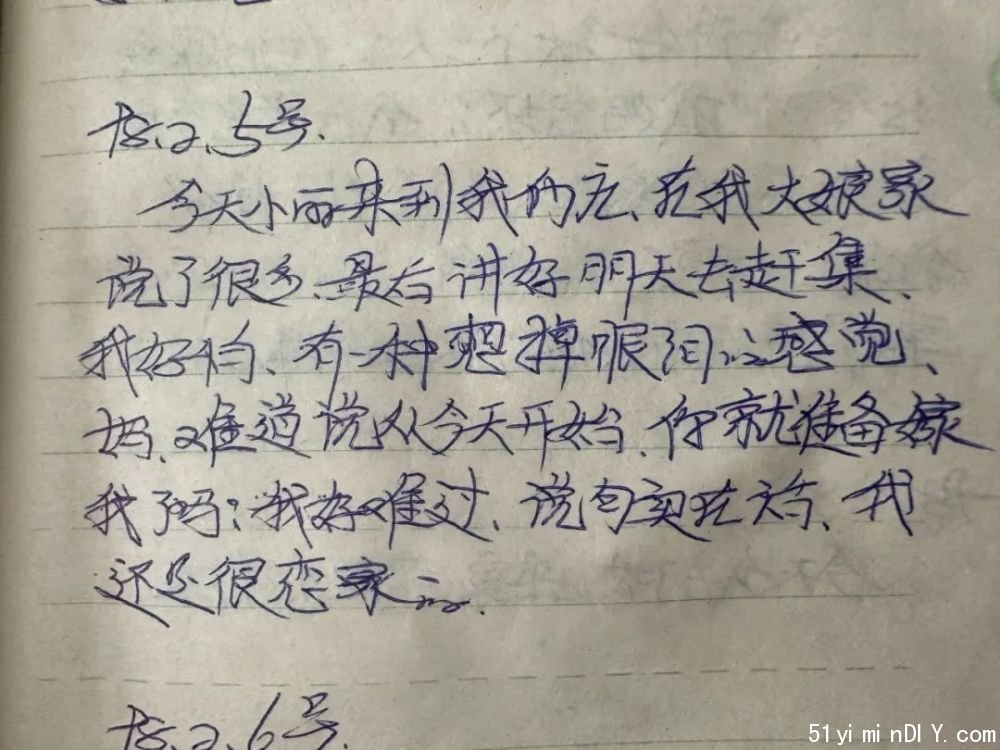 今天小丽来到我们庄、在我大娘家
说了很多、最后讲好明天去赶集、
我好怕、有一种想掉眼泪的感觉、
妈、难道说从今天开始、你就准备嫁
我了吗？我好难过、说句实在话、我
还是很恋家的.
.2.5号.
.2.6号.
51yiminDIY.com